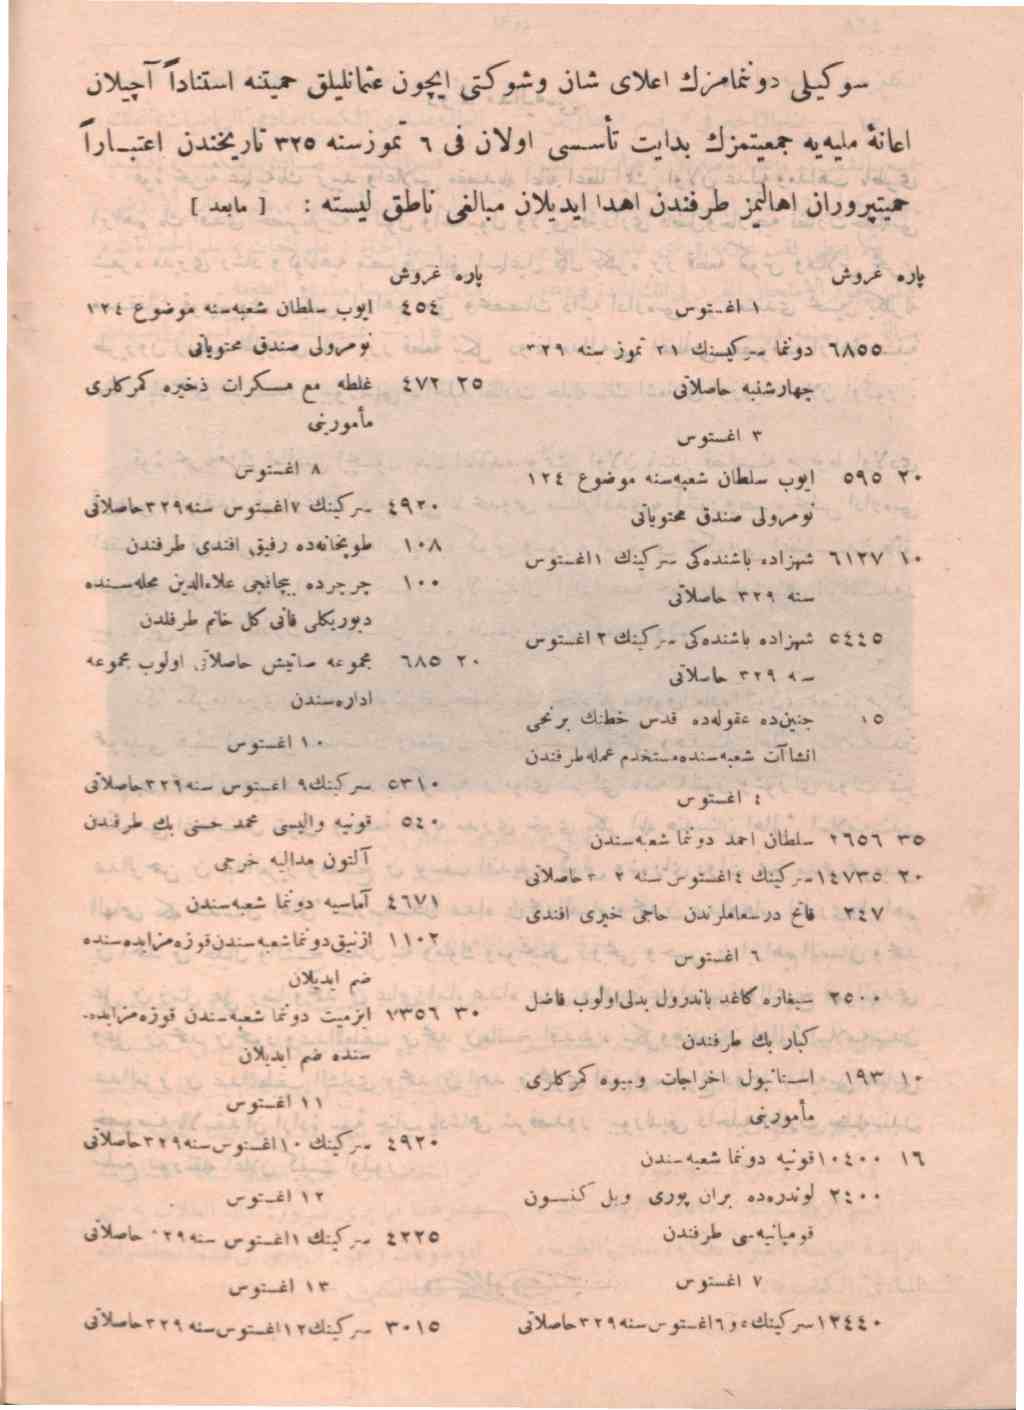 سوكیلی دوننمامزك اعلای شان وشوكتی ایچون عثمانلیلق حمیتنه استناداً آچیلان
اعانهٔ ملیه‌یه جمعیتمزك بدایت تأسسی اولان فی ٦ تموز سنه ٣٢٥ تاریخندن اعتباراً
حمیتپروران اهالیمز طرفندن اهدا ایدیلان مبالغی ناطق لیسته : [ مابعد ]
پاره غروش
١ اغستوس
٦٨٥٥ دوننما سركیسنك ٣١ تموز سنه ٣٢٩
چهارشنبه حاصلاتی
٣ اغستوس
٢٠ ٥٩٥ ایوب سلطان شعبه‌سنه موضوع ١٢٤
نومرولی صندق محتویاتی
١٠ ٦١٢٧ شهزاده باشنده‌كی سركینك ١ اغستوس
سنه ٣٢٩ حاصلاتی
٥٤٤٥ شهزاده باشنده‌كی سركینك ٢ اغستوس
سنه ٣٢٩ حاصلاتی
١٥ جنین‌ده عفوله‌ده قدس خطنك برنجی
انشاآت شعبه‌سنده مستخدم عمله طرفندن
٤ اغستوس
٣٥ ٢٦٥٦ سلطان احمد دوننما شعبه‌سندن
٢٠ ١٤٧٣٥ سركینك ٤ اغستوس سنه حاصلاتی
٢٤٧ فاتح درسعاملرندن حاجی خیری افندی
٦ اغستوس
٢٥٠٠ سیغاره كاغد باندرول بدلی اولوب فاضل
كبار بك طرفندن
١٠ ١٩٣ استانبول اخراجات ومیوه كمركلری
مأمورینی
١٦ ١٠٤٠٠ قونیه دوننما شعبه‌سندن
٢٤٠٠ لوندره‌ده بران پوری ویل كنسون
قومپانیه‌سی طرفندن
٧ اغستوس
١٣٤٤٠ سركینك ٥ و ٦ اغستوس سنه ٣٢٩ حاصلاتی
پاره غروش
٤٥٤ ایوب سلطان شعبه‌سنه موضوع ١٢٤
نومرولی صندق محتویاتی
٢٥ ٤٧٢ غلطه مع مسكرات ذخیره كمركلری
مأمورینی
٨ اغستوس
٤٩٢٠ سركینك ٧ اغستوس سنه ٣٢٩ حاصلاتی
١٠٨ طوپخانه‌ده رفیق افندی طرفندن
١٠٠ جرجرده بیچاقجی علاءالدین محله‌سنده
دیوریكلی فاتی كل خانم طرفلدن
٢٠ ٦٨٥ مجموعه صاتیش حاصلاتی اولوب مجموعه
اداره‌سندن
١٠ اغستوس
٥٣١٠ سركینك ٩ اغستوس سنه ٣٢٩ حاصلاتی
٥٤٠ قونیه والیسی محمد حسنی بك طرفندن
آلتون مدالیه خرجی
٤٦٧١ آماسیه دوننما شعبه‌سندن
١١٠٢ ازنیق دوننما شعبه‌سندن قوزه مزایده‌سنده
ضم ایدیلان
٣٠ ٧٣٥٦ ایزمیت دوننما شعبه‌سندن قوزه مزایده‌
سنده ضم ایدیلان
١١ اغستوس
٤٩٢٠ سركینك ١٠ اغستوس سنه ٣٢٩ حاصلاتی
١٢ اغستوس
٤٢٢٥ سركینك ١١ اغستوس سنه ٣٢٩ حاصلاتی
١٣ اغستوس
٣٠١٥ سركینك ١٢ اغستوس سنه ٣٢٩ حاصلاتی